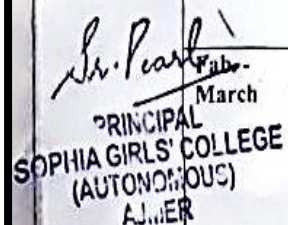 Sr. Pearl
Fab-
March
PRINCIPAL
SOPHIA GIRLS' COLLEGE
(AUTONOMOUS)
AJMER